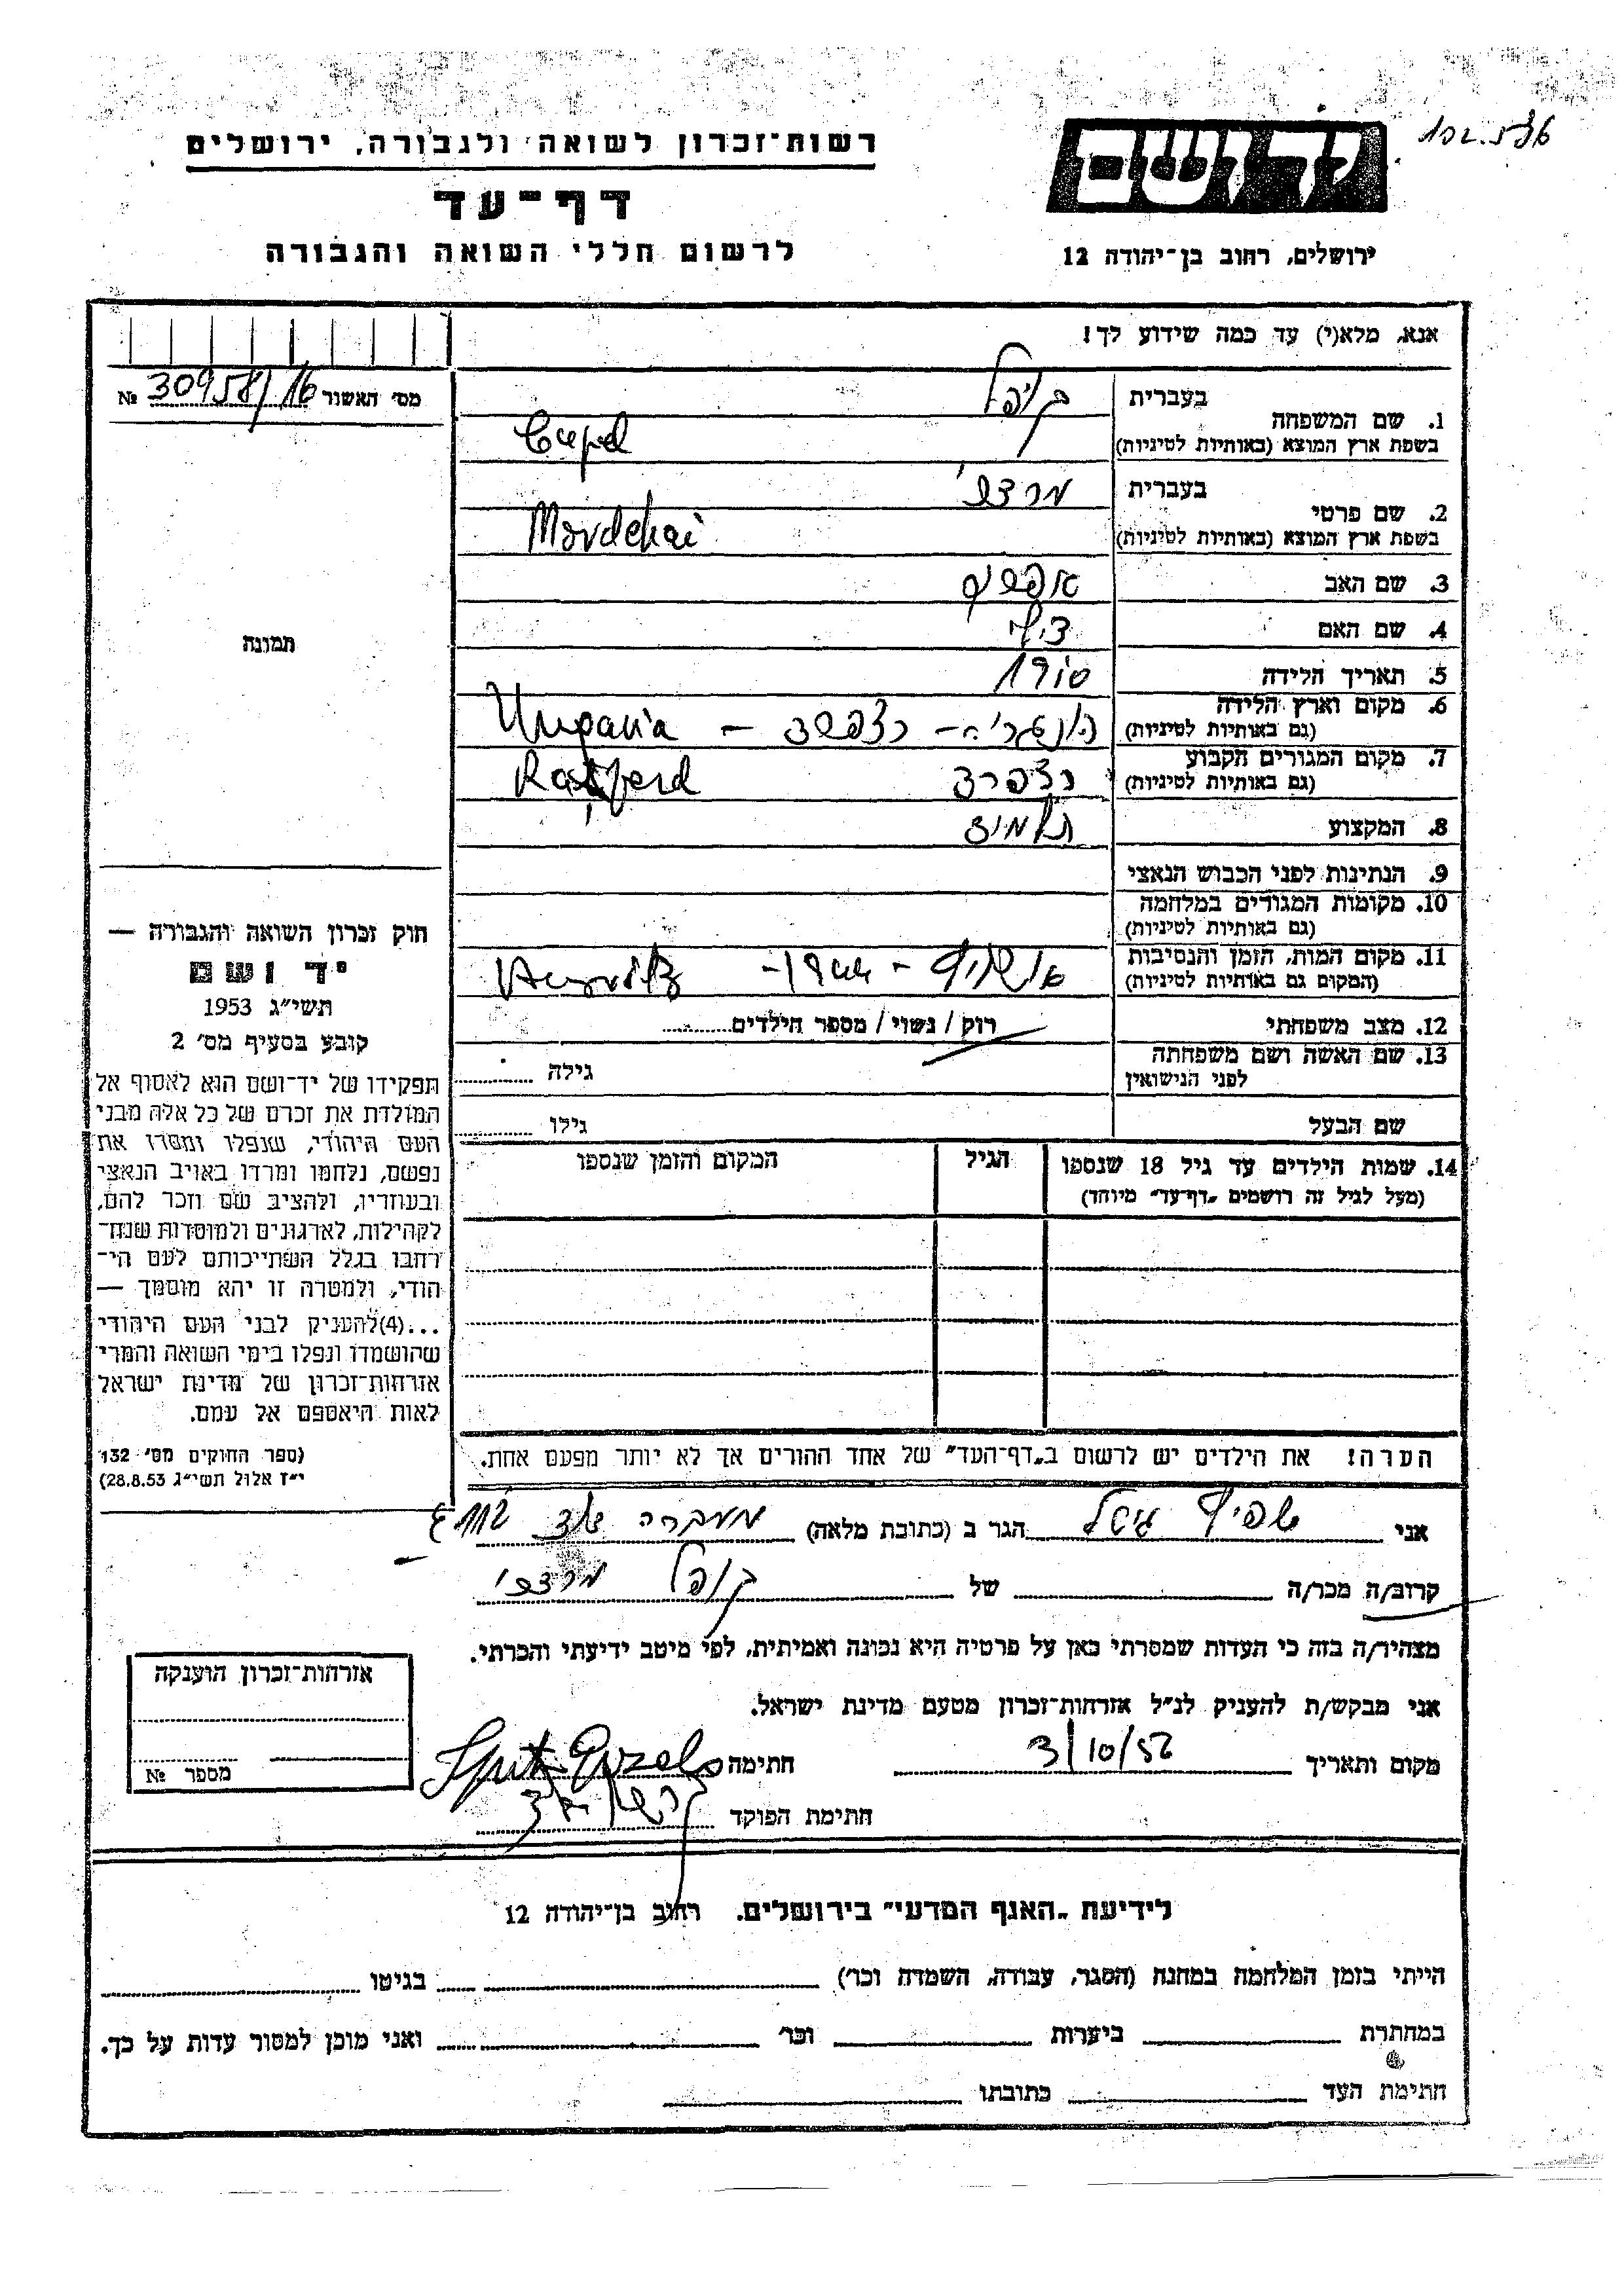 רשות־זכרון לשואה ולגבורה, ירושלים
דף־עד
לרשום חללי השואה והגבורה
יד ושם
ירושלים, רחוב בן־יהודה 12
אנא, מלא(י) עד כמה שידוע לך!
מס׳ האשור 30958/16 №
1. שם המשפחה
בעברית קופל
בשפת ארץ המוצא (באותיות לטיניות)
2. שם פרטי
בעברית מרדכי
בשפת ארץ המוצא (באותיות לטיניות) Mordehai
3. שם האב
4. שם האם
5. תאריך הלידה
6. מקום וארץ הלידה
(גם באותיות לטיניות)
7. מקום המגורים הקבוע
(גם באותיות לטיניות)
8. המקצוע תלמיד
9. הנתינות לפני הכבוש הנאצי
10. מקומות המגורים במלחמה
(גם באותיות לטיניות)
11. מקום המות, הזמן והנסיבות
(המקום גם באותיות לטיניות) 1944
12. מצב משפחתי רוק / נשוי / מספר הילדים
13. שם האשה ושם משפחתה
לפני הנישואין
גילה
שם הבעל גילו
14. שמות הילדים עד גיל 18 שנספו
(מעל לגיל זה רושמים „דף־עד״ מיוחד)
הגיל
המקום והזמן שנספו
הערה! את הילדים יש לרשום ב„דף־העד״ של אחד ההורים אך לא יותר מפעם אחת.
תמונה
חוק זכרון השואה והגבורה —
יד ושם
תשי״ג 1953
קובע בסעיף מס׳ 2
תפקידו של יד־ושם הוא לאסוף אל
המולדת את זכרם של כל אלה מבני
העם היהודי, שנפלו ומסרו את
נפשם, נלחמו ומרדו באויב הנאצי
ובעוזריו, ולהציב שם וזכר להם,
לקהילות, לארגונים ולמוסדות שנח־
רחבו בגלל השתייכותם לעם הי־
הודי, ולמטרה זו יהא מוסמך —
...(4)להעניק לבני העם היהודי
שהושמדו ונפלו בימי השואה והמרי
אזרחות־זכרון של מדינת ישראל
לאות היאספם אל עמם.
(ספר החוקים מס׳ 132
י״ז אלול תשי״ג 28.8.53)
אני הגר ב (כתובת מלאה) מעברה
קרוב/ה מכר/ה של קופל מרדכי
מצהיר/ה בזה כי העדות שמסרתי כאן על פרטיה היא נכונה ואמיתית, לפי מיטב ידיעתי והכרתי.
אני מבקש/ת להעניק לנ״ל אזרחות־זכרון מטעם מדינת ישראל.
מקום ותאריך 3/10/56 חתימה
חתימת הפוקד
אזרחות־זכרון הוענקה
מספר №
לידיעת „האגף המדעי״ בירושלים. רחוב בן־יהודה 12
הייתי בזמן המלחמה במחנה (הסגר, עבודה, השמדה וכר׳) בגיטו
במחתרת ביערות וכר׳ ואני מוכן למסור עדות על כך.
חתימת העד כתובתו